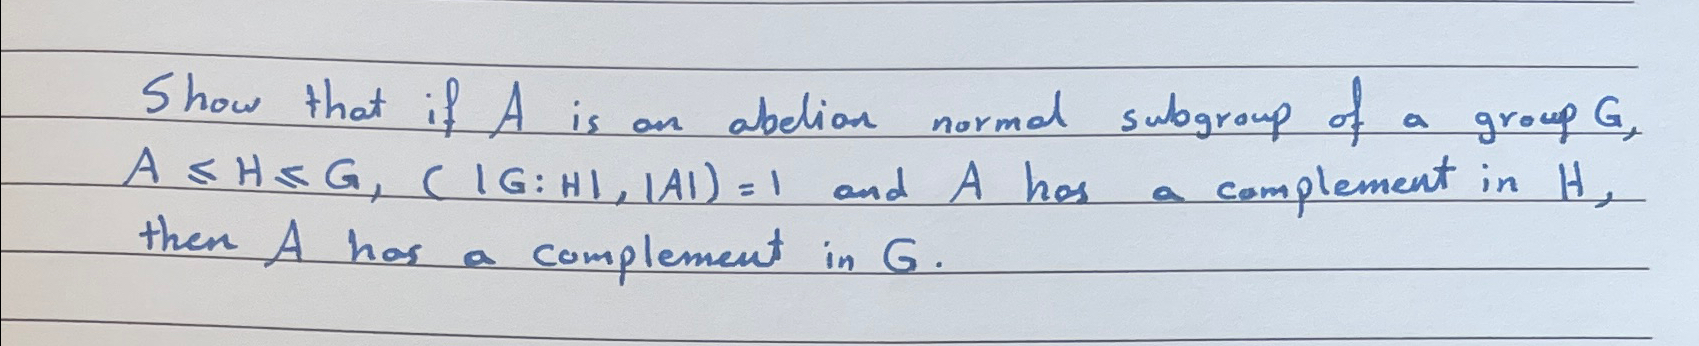 Show that if A is an abelian normal subgroup of a group G,
A ≤ H ≤ G, (|G:H|, |A|) = 1 and A has a complement in H,
then A has a complement in G.